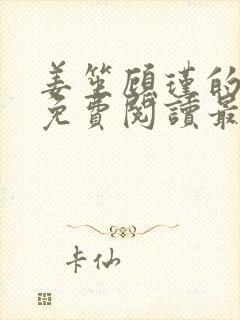 姜笙顧瑾的
免費閱讀最
卡仙